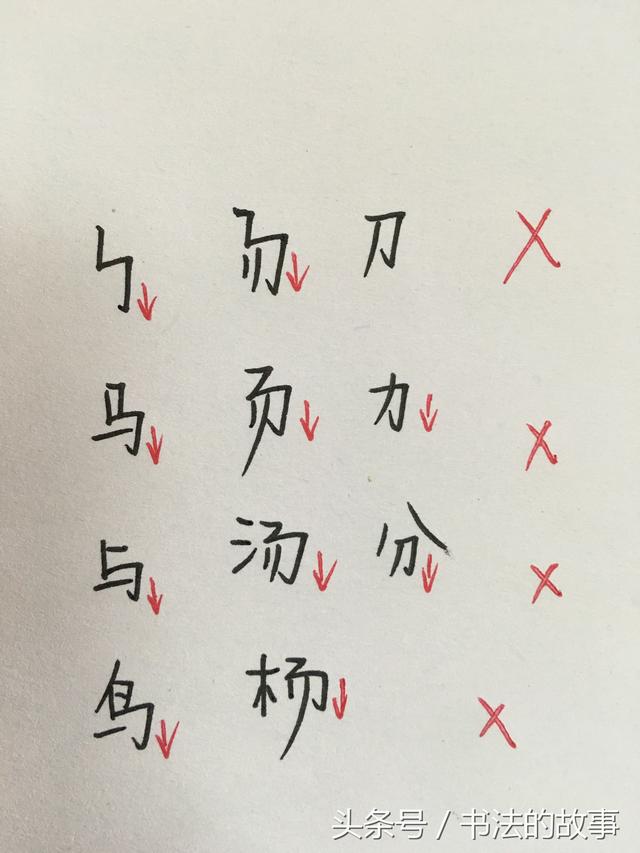 刀
马 力
与 汤 分
鸟 杨
头条号 / 书法的故事